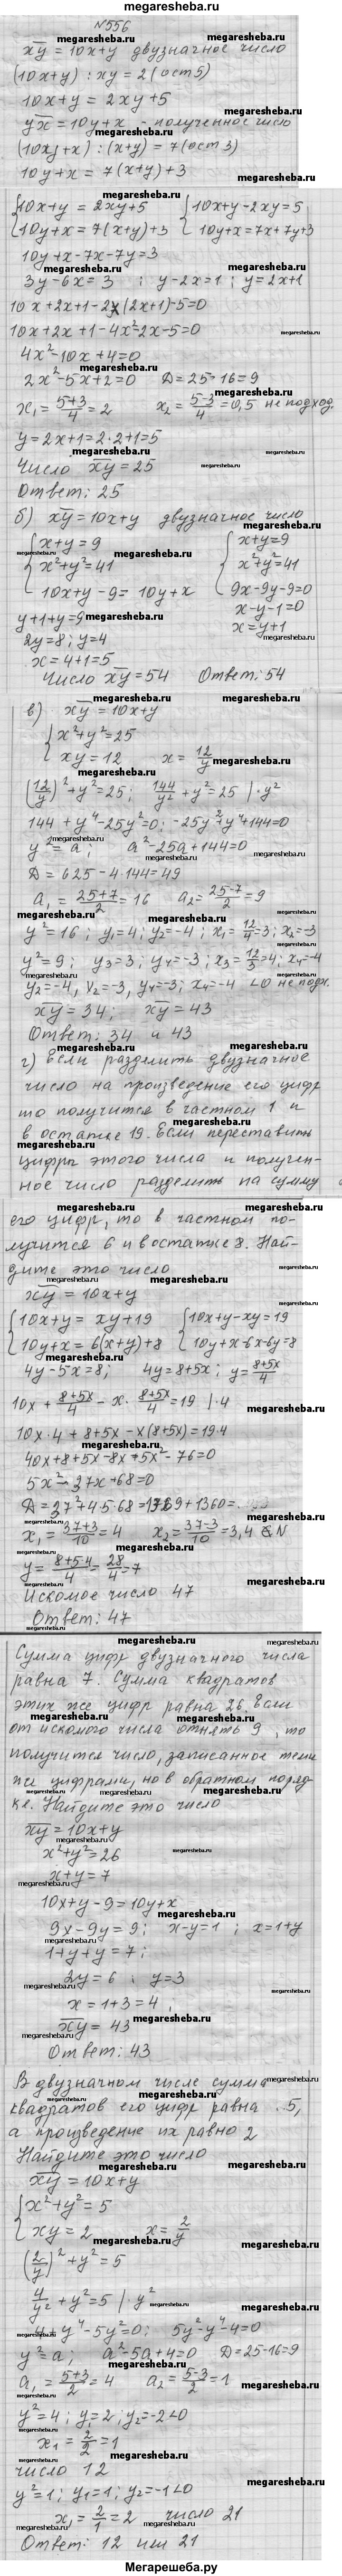 megaresheba.ru
№556
xy = 10x+y двузначное число
(10x+y) : xy = 2 (ост5)
10x+y = 2xy+5
yx = 10y+x - полученное число
(10y+x) : (x+y) = 7 (ост 3)
10y+x = 7(x+y)+3
{10x+y = 2xy+5 {10x+y-2xy=5
10y+x = 7(x+y)+3 10y+x=7x+7y+3
10y+x-7x-7y=3
3y-6x=3 ; y-2x=1 ; y=2x+1
10x+2x+1-2x(2x+1)-5=0
10x+2x+1-4x²-2x-5=0
4x²-10x+4=0
2x²-5x+2=0 D=25-16=9
x₁=5+3/4=2 x₂=5-3/4=0,5 не подход.
y=2x+1=2·2+1=5
Число xy=25
Ответ: 25
б) xy=10x+y двузначное число
{x+y=9 {x+y=9
x²+y²=41 x²+y²=41
10x+y-9=10y+x 9x-9y-9=0
y+1+y=9 x-y-1=0
2y=8; y=4 x=y+1
x=4+1=5
Число xy=54 Ответ: 54
в) xy=10x+y
{x²+y²=25
xy=12 x=12/y
(12/y)²+y²=25; 144/y²+y²=25 |·y²
144+y⁴-25y²=0; -25y²+y⁴+144=0
y²=a; a²-25a+144=0
D=625-4·144=49
a₁=25+7/2=16 a₂=25-7/2=9
y²=16; y₁=4; y₂=-4; x₁=12/4=3; x₂=-3
y²=9; y₃=3; y₄=-3; x₃=12/3=4; x₄=-4
y₂=-4, x₂=-3, y₄=-3; x₄=-4 <0 не подх.
xy=34; xy=43
Ответ: 34 и 43
г) Если разделить двузначное
число на произведение его цифр
то получится в частном 1 и
в остатке 19. Если переставить
цифры этого числа и получен-
ное число разделить на сумму
его цифр, то в частном по-
лучится 6 и в остатке 8. Най-
дите это число
xy=10x+y
{10x+y=xy+19 {10x+y-xy=19
10y+x=6(x+y)+8 10y+x-6x-6y=8
4y-5x=8; 4y=8+5x; y=8+5x/4
10x+8+5x/4-x·8+5x/4=19 |·4
10x·4+8+5x-x(8+5x)=19·4
40x+8+5x-8x-5x²-76=0
5x²-37x+68=0
x₁=37+3/10=4 x₂=37-3/10=3,4 ∉N
y=8+5·4/4=28/4=7
Искомое число 47
Ответ: 47
Сумма цифр двузначного числа
равна 7. Сумма квадратов
этих же цифр равна 26. Если
от искомого числа отнять 9, то
получится число, записанное теми
же цифрами, но в обратном поряд-
ке. Найдите это число
xy=10x+y
x²+y²=26
x+y=7
10x+y-9=10y+x
9x-9y=9; x-y=1 ; x=1+y
1+y+y=7;
2y=6 ; y=3
x=1+3=4
xy=43
Ответ: 43
В двузначном числе сумма
квадратов его цифр равна 5,
а произведение их равно 2
Найдите это число
xy=10x+y
{x²+y²=5
xy=2 x=2/y
(2/y)²+y²=5
4/y²+y²=5 |·y²
4+y⁴-5y²=0; 5y²-y⁴-4=0
y²=a; a²-5a+4=0 D=25-16=9
a₁=5+3/2=4 a₂=5-3/2=1
y²=4; y=2; y₂=-2<0
x₁=2/2=1
число 12
y²=1; y₁=1; y₂=-1<0
x₁=2/1=2 число 21
Ответ: 12 или 21
Мегарешеба.ру